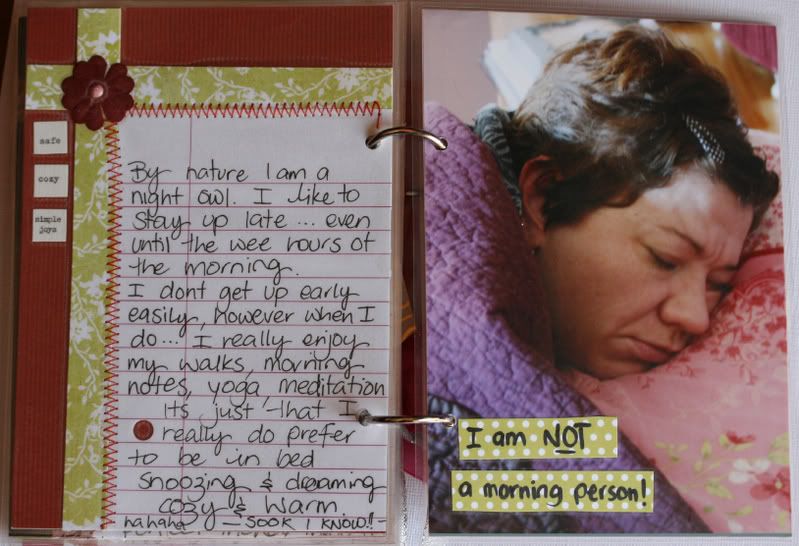 safe
cozy
simple
joys
By nature I am a
night owl. I like to
stay up late ... even
until the wee hours of
the morning.
I dont get up early
easily, however when I
do... I really enjoy
my walks, morning
notes, yoga, meditation
Its just that I
really do prefer
to be in bed
snoozing & dreaming
cozy & warm.
hahaha — SOOK I KNOW!! -
I am NOT
a morning person!